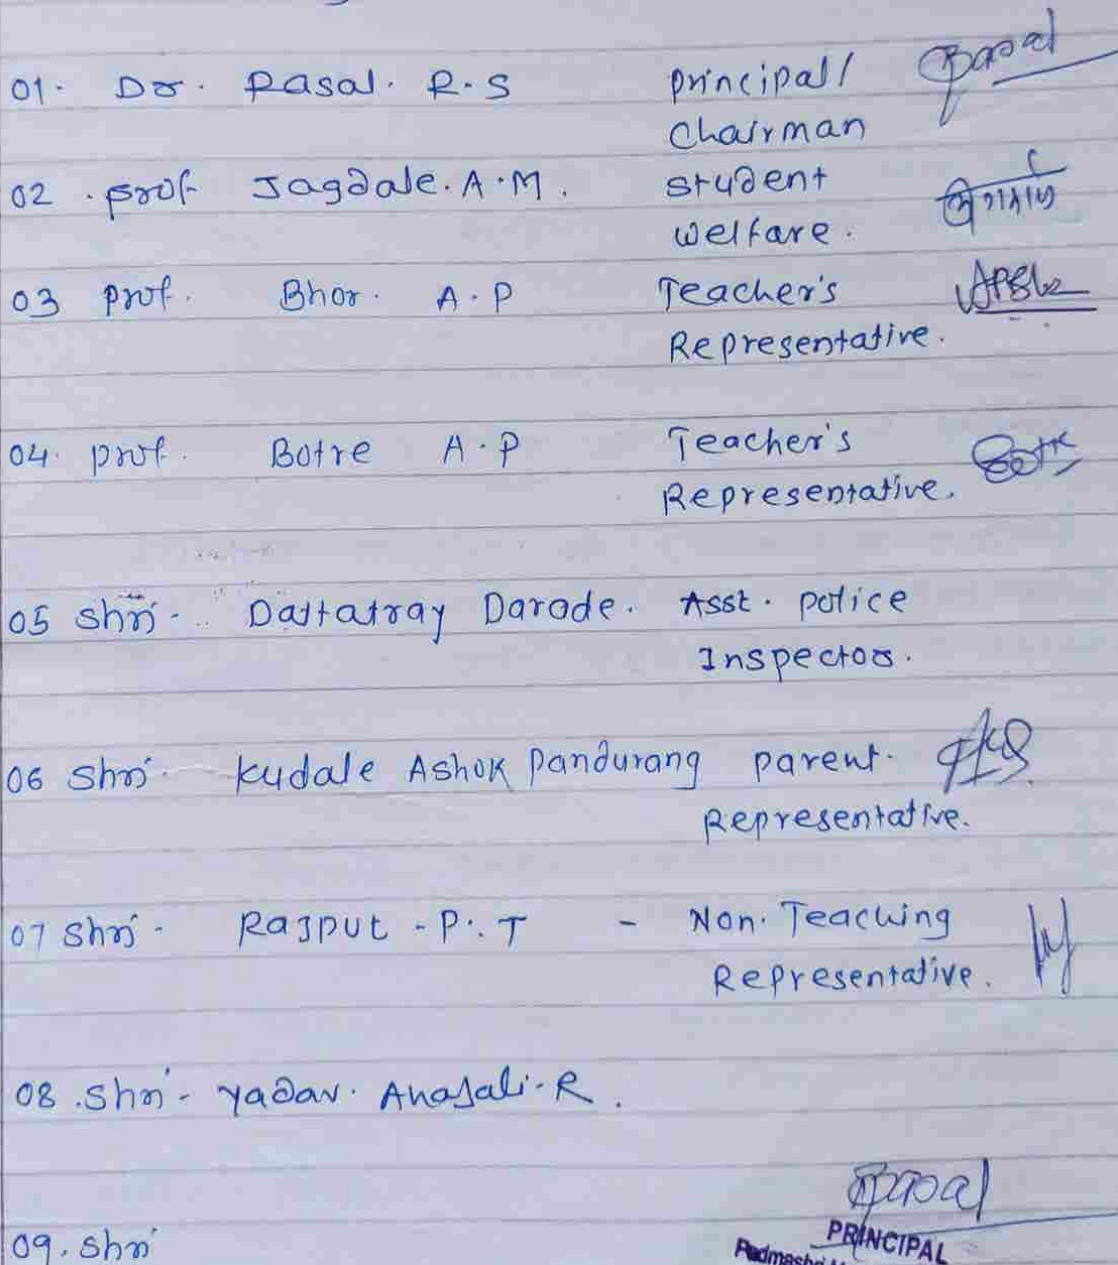 01. Dr. Rasal. R.S principal/
chairman
02. prof Jagdale. A.M. student
welfare.
03 prof. Bhor. A.P Teacher's
Representative.
04. prof. Botre A.P Teacher's
Representative.
05 Shri. Dattatray Darade. Asst. police
Inspector.
06 Shri. Kudale Ashok Pandurang parent.
Representative.
07 Shri - Rajput - P.T - Non. Teaching
Representative.
08. Shri - Yadav. R.
09. Shri
PRINCIPAL
Padmashri